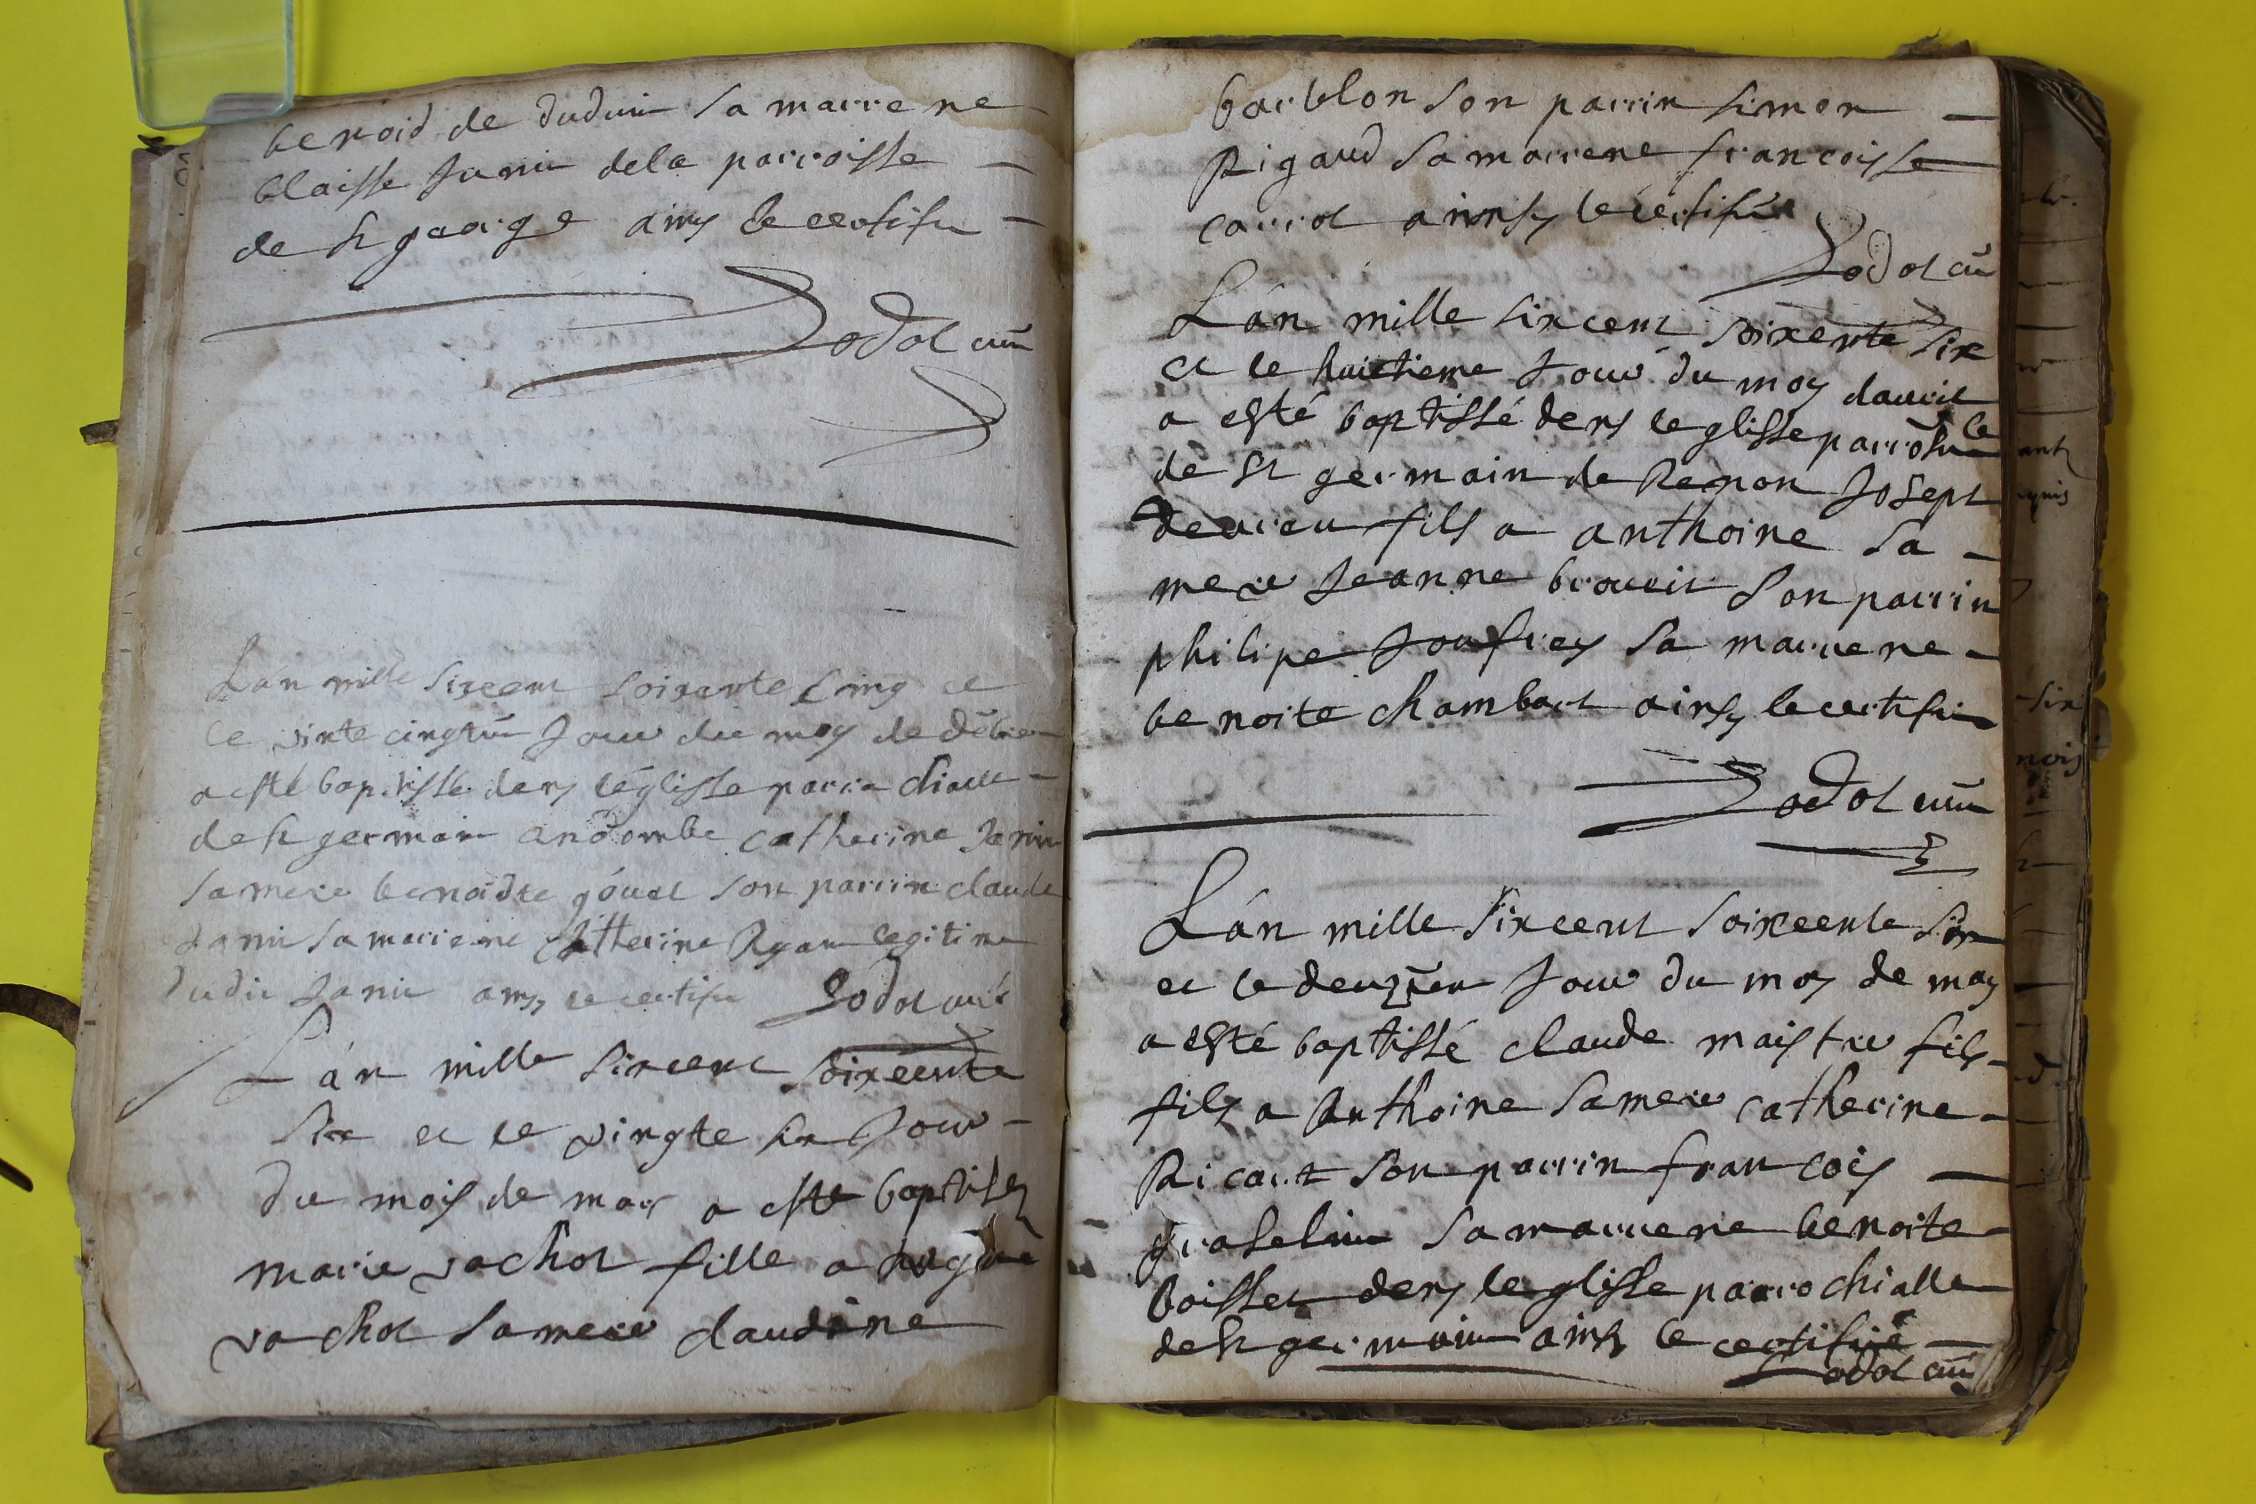 benoid de duduin sa marrene
blaisse Janin dela parroisse
de st george ainsy le certifie
Lodot curé
Lán mille sixcent soixante cinq et
le vinte cinqme Jour du moy de debre
a esté baptisse dens léglisse parrochialle
de st germain and ombe catherine Janin
sa mere benoidte góuat son parrin claude
Janin sa marrene Catherine Ryau legitime
dudit Janin ainsy le certifie Lodot curé
Lán mille sixcent soixeente
six et le vingte six Jour
du moys de mars a esté baptisés
marie vachot fille a hugue
vachot sa mere claudine
barblon son parrin simon
Rigaud sa marrene francoisse
carrot ainsy le certifie
Lodot cu
Lán mille sixcent soixente six
et le huictieme Jour du moy dauril
a esté baptissé dens leglisse parrohialle
de st germain de Renon Josept
deureu fils a anthoine sa
mere Jeanne brouvit son parrin
philipe Joufrey sa marrene
benoite chambart ainsy le certifie
Lodot cure
Lán mille sixcent soixeente six
et le deuziem Jour du moy de may
a esté baptissé claude maistre fils
fils a Anthoine sa mere catherine
Ricart son parrin francois
graselin sa marrene benoite
boisset dens leglisse parrochialle
de st germain ainsy le certifié
Lodot cur